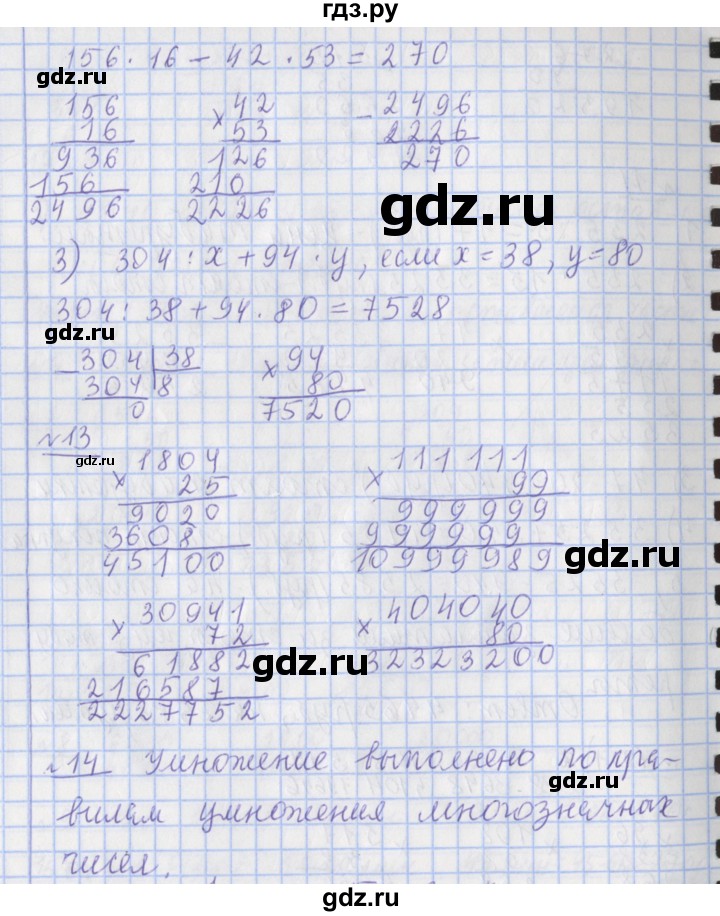 гдз.ру
156 · 16 - 42 · 53 = 270
gdz.ru
156
16
936
156
2496
× 42
53
126
210
2226
- 2496
2226
270
gdz.ru
3) 304 : x + 94 · y, если x = 38, y = 80
304 : 38 + 94 · 80 = 7528
gdz.ru
- 304 38
304 8
0
× 94
80
7520
№13
gdz.ru
× 1804
25
9020
3608
45100
× 111 111
99
999999
999999
10999989
gdz.ru
× 30941
72
61882
216587
2227752
gdz.ru
× 404040
80
32323200
№14 Умножение выполнено по пра-
gdz.ru
вилам умножения многозначных
чисел.
gdz.ru